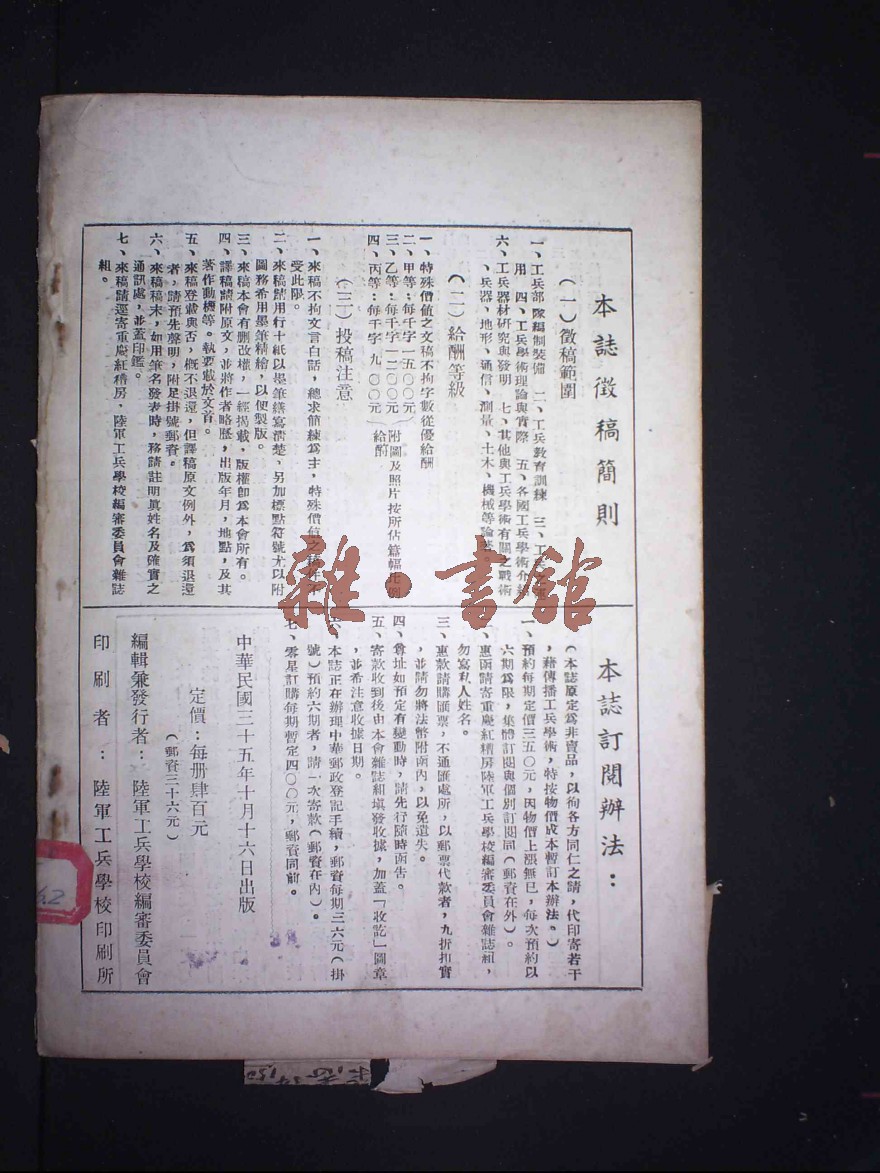 本誌徵稿簡則
（一）徵稿範圍
一、工兵部隊編制裝備　二、工兵教育訓練　三、工兵之
用　四、工兵學術理論與實際　五、各國工兵學術介紹
六、工兵器材研究與發明　七、其他與工兵學術有關之戰術
、兵器、地形、通信、測量、土木、機械等論著
（二）給酬等級
一、特殊價值之文稿不拘字數從優給酬
二、甲等：每千字一五〇〇元
三、乙等：每千字一二〇〇元
四、丙等：每千字　九〇〇元
附圖及照片按所佔篇幅比例
給酌
（三）投稿注意
一、來稿不拘文言白話，總求簡練爲主，特殊價值之稿件不
受此限。
二、來稿請用行十紙以墨筆繕寫清楚，另加標點符號尤以附
圖務希用墨筆精繪，以便製版。
三、來稿本會有删改權，一經揭載，版權卽爲本會所有。
四、譯稿請附原文，並將作者略歷，出版年月，地點，及其
著作動機等。執要載於文首。
五、來稿登載與否，概不退還，但譯稿原文例外，爲須退還
者，請預先聲明，附足掛號郵資。
六、來稿稿末，如用筆名發表時，務請註明眞姓名及確實之
通訊處，並蓋印鑑。
七、來稿請逕寄重慶紅糟房，陸軍工兵學校編審委員會雜誌
組。
本誌訂閱辦法：
（本誌原定爲非賣品，以徇各方同仁之請，代印寄若干
，藉傳播工兵學術，特按物價成本暫訂本辦法。）
一、預約每期定價三五〇元，因物價上漲無已，每次預約以
六期爲限，集體訂閱與個別訂閱同（郵資在外）。
惠函請寄重慶紅糟房陸軍工兵學校編審委員會雜誌組，
勿寫私人姓名。
三、惠款請購匯票，不通匯處所，以郵票代款者，九折扣實
，並請勿將法幣附函內，以免遺失。
四、尊址如預定有變動時，請先行隨時函告。
五、寄款收到後由本會雜誌組填發收據，加蓋「收訖」圖章
，並希注意收據日期。
六、本誌正在辦理中華郵政登記手續，郵資每期三六元（掛
號）預約六期者，請一次寄款（郵資在內）。
七、零星訂購每期暫定四〇〇元，郵資同前。
中華民國三十五年十月十六日出版
定價：每册肆百元
（郵資三十六元）
編輯兼發行者：陸軍工兵學校編審委員會
印刷者：陸軍工兵學校印刷所
雜·書館